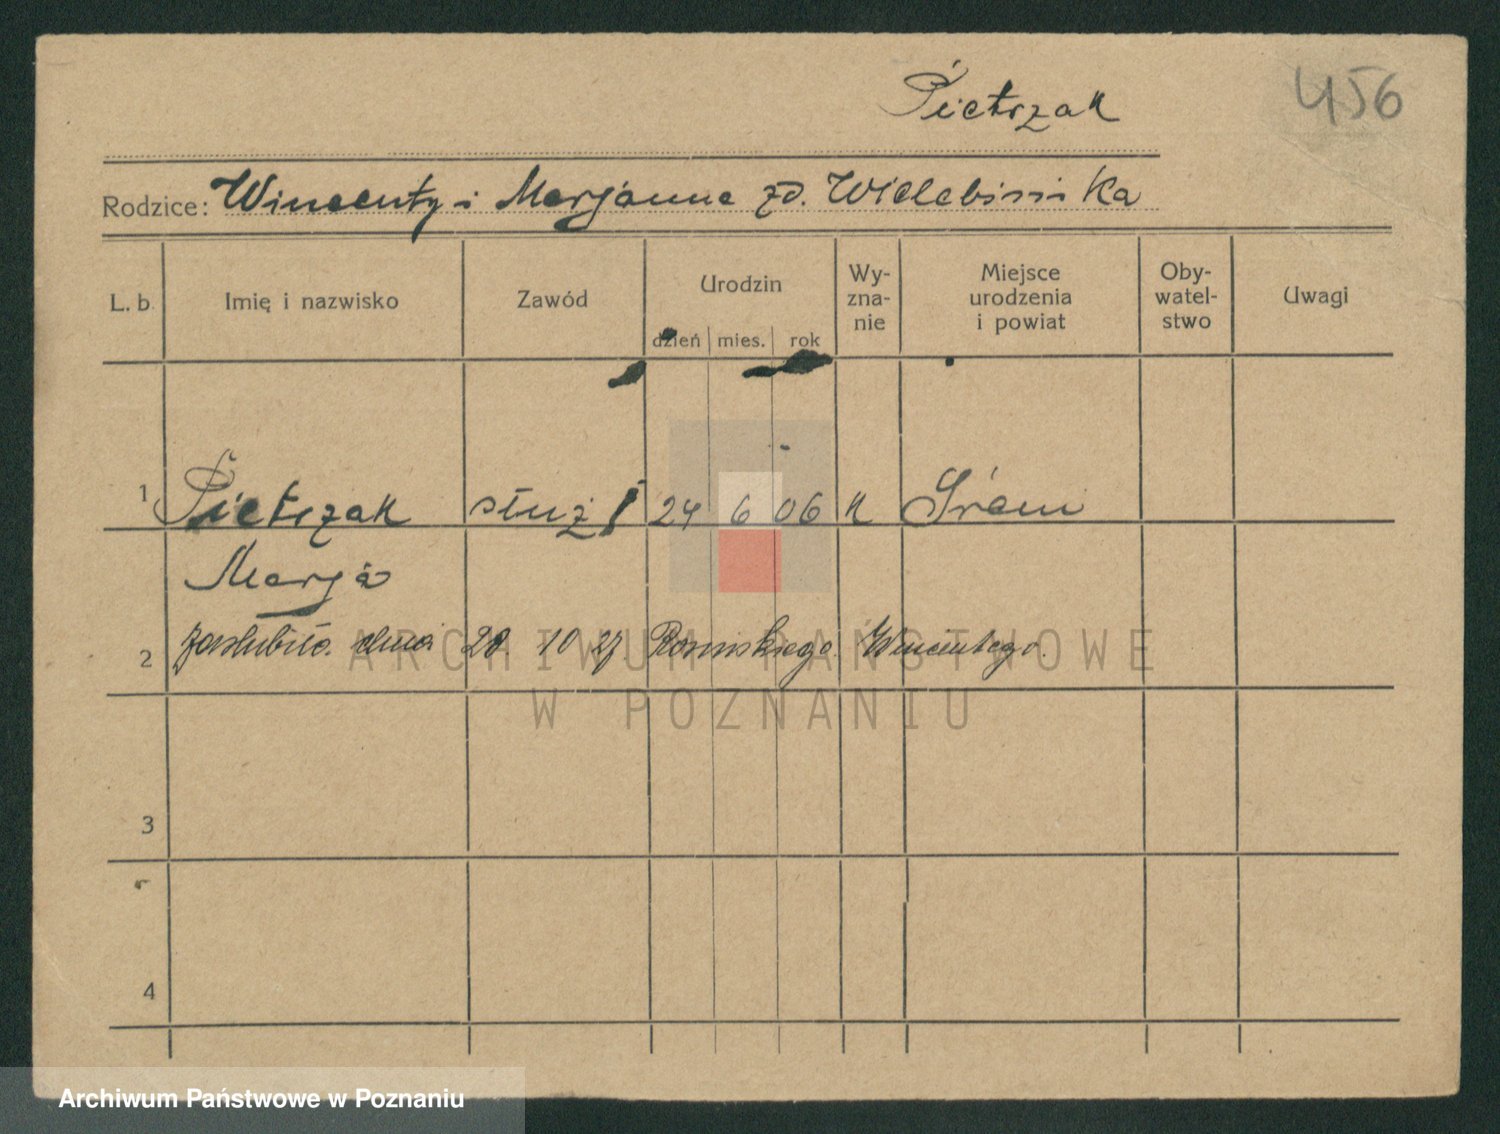 Pietrzak
456
Rodzice: Wincenty i Marjanna zd.
L. b. Imię i nazwisko Zawód Urodzin dzień mies. rok Wy-zna-nie Miejsce urodzenia i powiat Oby-watel-stwo Uwagi
1 Pietrzak służ 24 6 06 k Śrem
Marja
2 zaślubiła dnia 28 10 27 Wincentego.
ARCHIWUM PAŃSTWOWE
W POZNANIU
3
4
Archiwum Państwowe w Poznaniu